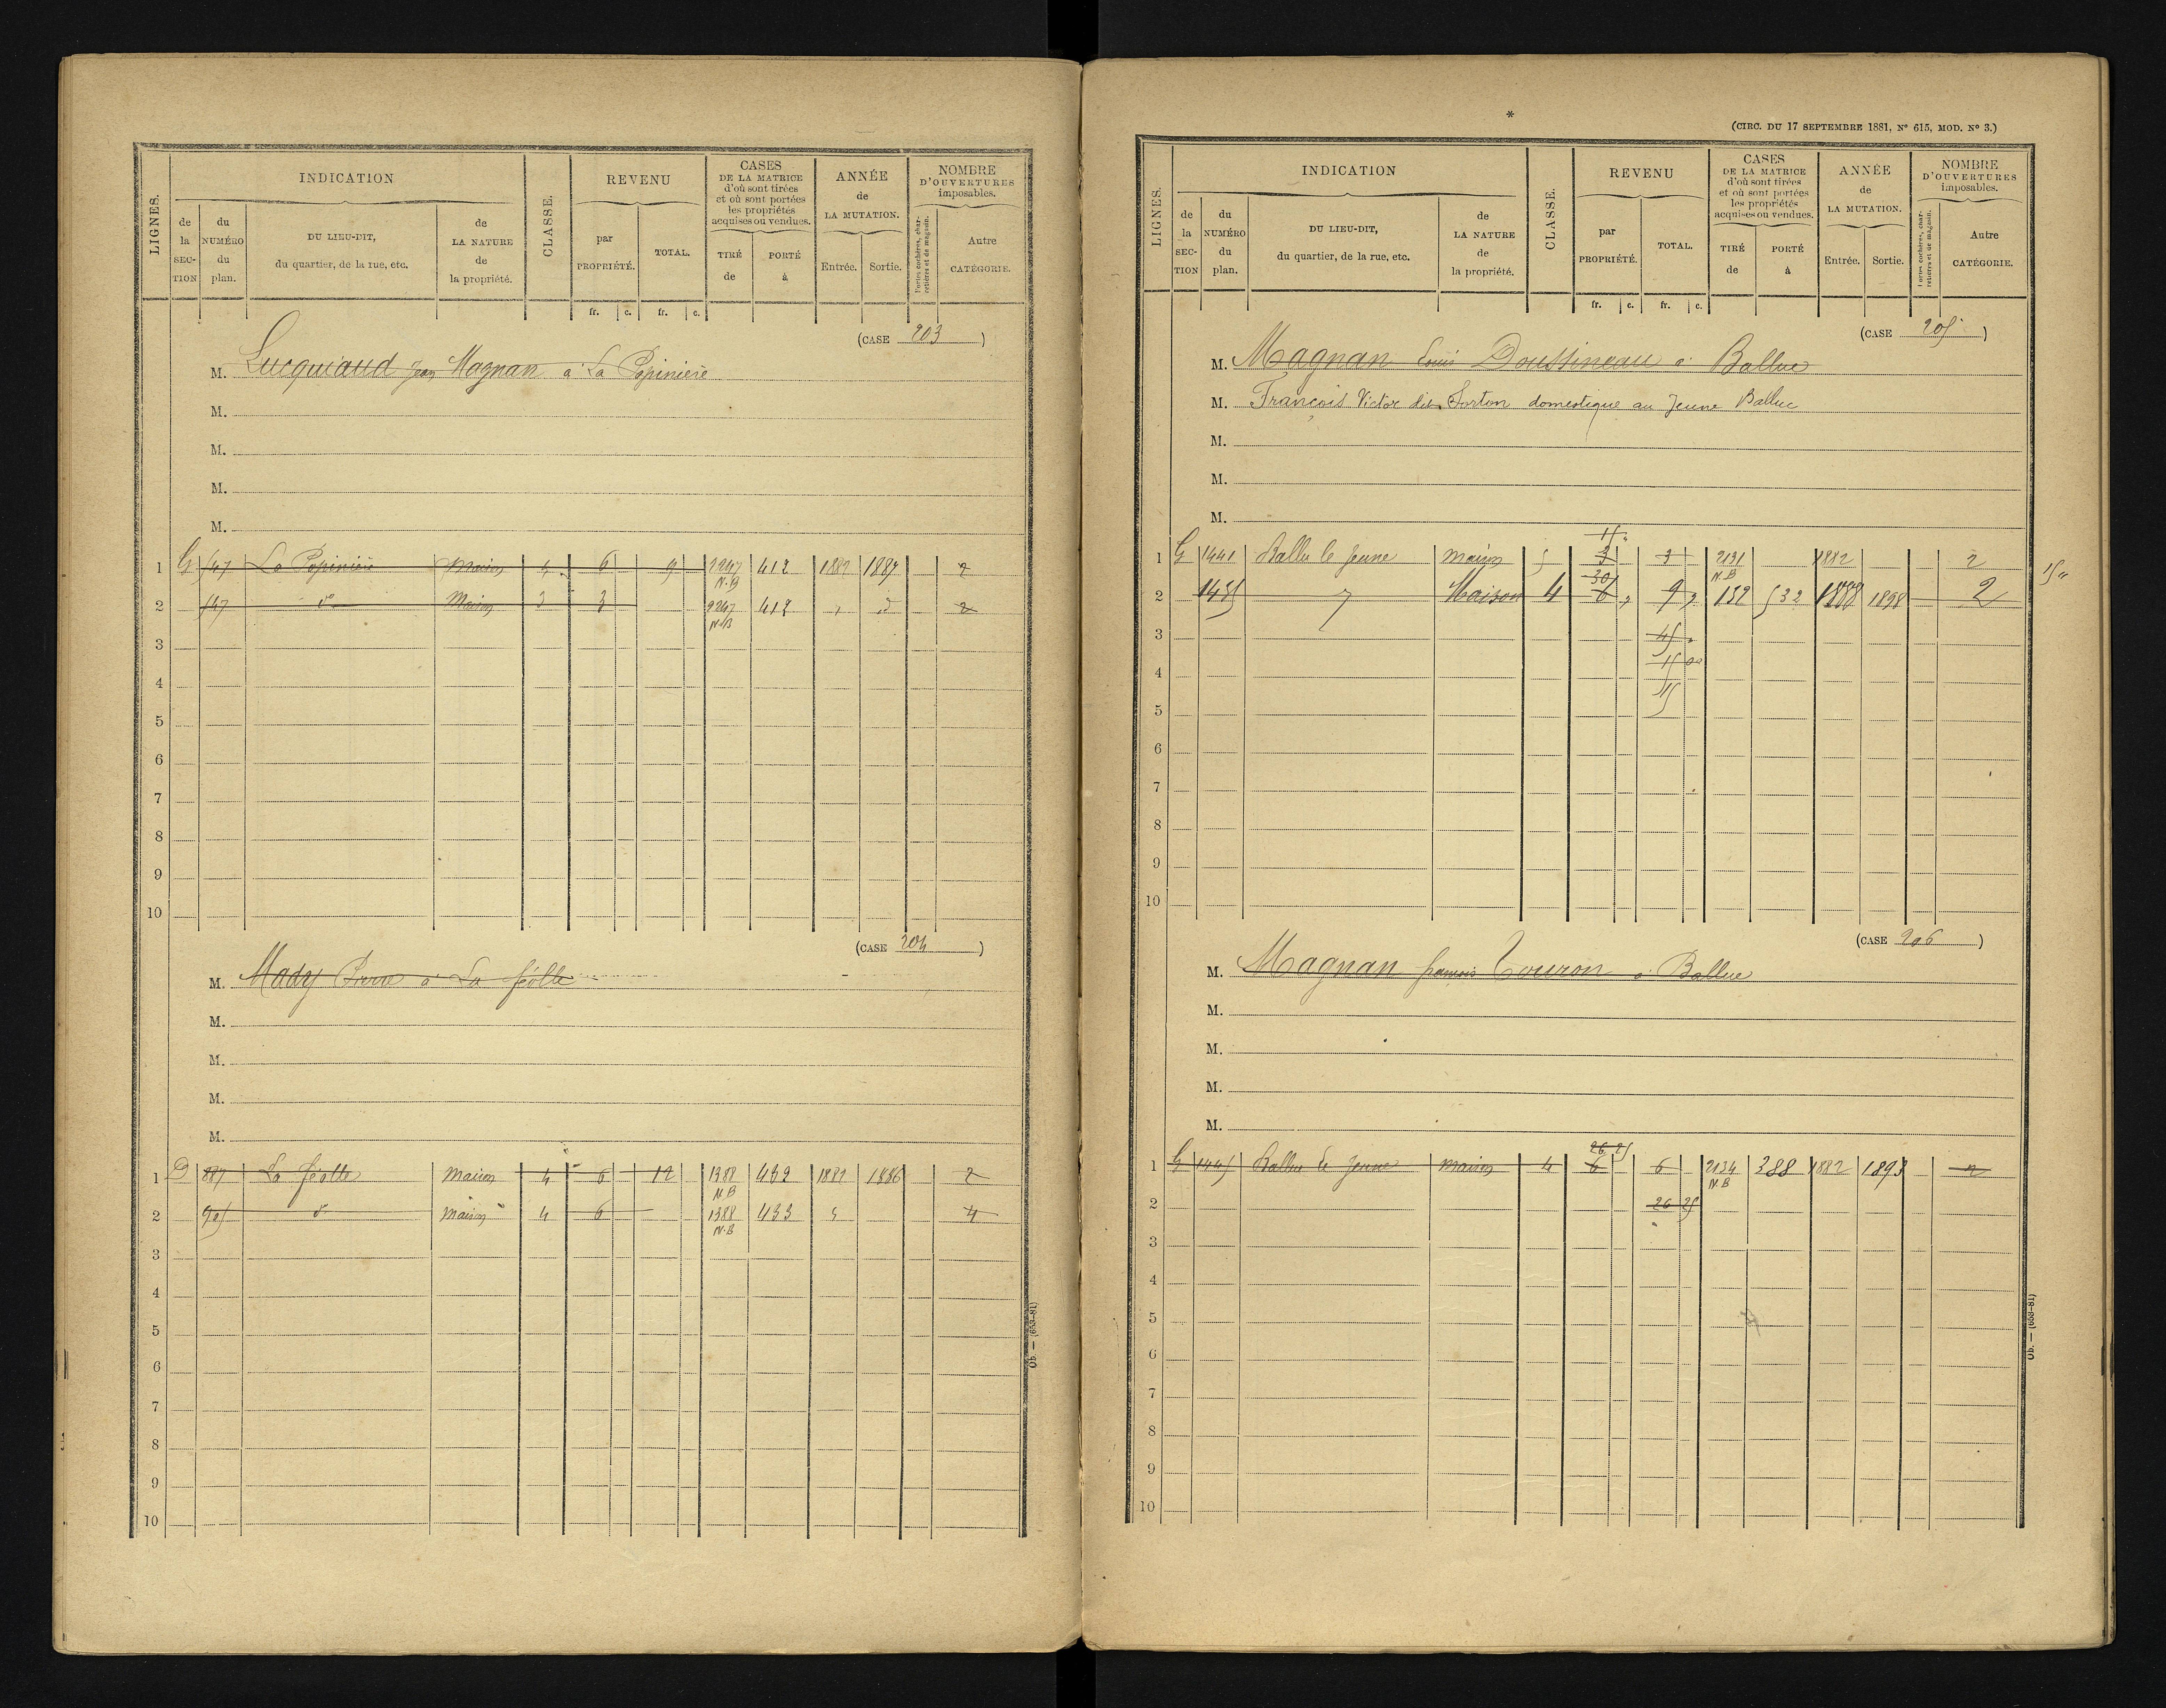 LIGNES.
INDICATION
CLASSE.
REVENU
CASES
DE LA MATRICE
d'où sont tirées
et où sont portées
les propriétés
acquises ou vendues.
ANNÉE
de
LA MUTATION.
NOMBRE
D'OUVERTURES
imposables.
de la SECTION
du NUMÉRO du plan.
DU LIEU-DIT,
du quartier, de la rue, etc.
de LA NATURE de la propriété.
par PROPRIÉTÉ.
TOTAL.
TIRÉ de
PORTÉ à
Entrée.
Sortie.
Portes cochères, charretières et de magasin.
Autre CATÉGORIE.
fr. c. fr. c.
(CASE 203)
M. Lucquiaud Jean Magnan à La Popinière
M.
M.
M.
M.
1 G 547 La Popinière Maison 4 6 9 2247 N.B 412 1882 1887 2
2 547 do Maison 3 3 2247 N.B 412 2
3
4
5
6
7
8
9
10
(CASE 204)
M. Mady Pierre à La féolle
M.
M.
M.
M.
1 D 887 La féolle Maison 4 6 12 1388 N.B 432 1882 1886 2
2 905 do Maison 4 6 1388 N.B 433 4
3
4
5
6
7
8
9
10
Ob. — (653-81)
*
(CIRC. DU 17 SEPTEMBRE 1881, No 615, MOD. No 3.)
LIGNES.
INDICATION
CLASSE.
REVENU
CASES
DE LA MATRICE
d'où sont tirées
et où sont portées
les propriétés
acquises ou vendues.
ANNÉE
de
LA MUTATION.
NOMBRE
D'OUVERTURES
imposables.
de la SECTION
du NUMÉRO du plan.
DU LIEU-DIT,
du quartier, de la rue, etc.
de LA NATURE de la propriété.
par PROPRIÉTÉ.
TOTAL.
TIRÉ de
PORTÉ à
Entrée.
Sortie.
Portes cochères, charretières et de magasin.
Autre CATÉGORIE.
fr. c. fr. c.
(CASE 205)
M. Magnan Louis Doussineau à Ballue
M. François Victor dit Sorton domestique au Jeune Balluc
M.
M.
M.
15
1 G 1441 Ballu le Jeune Maison 5 3 3 2131 N.B 1882 2
15
30
2 1485 Maison 4 6 9 132 532 1888 1898 2
3 45
4 15 00
15
5
6
7
8
9
10
(CASE 206)
M. Magnan françois Touron à Ballue
M.
M.
M.
M.
26 25
1 G 1445 Ballue le Jeune Maison 4 6 6 2134 N.B 388 1882 1893 2
2 26 25
3
4
5
6
7
8
9
10
Ob. — (653-81)